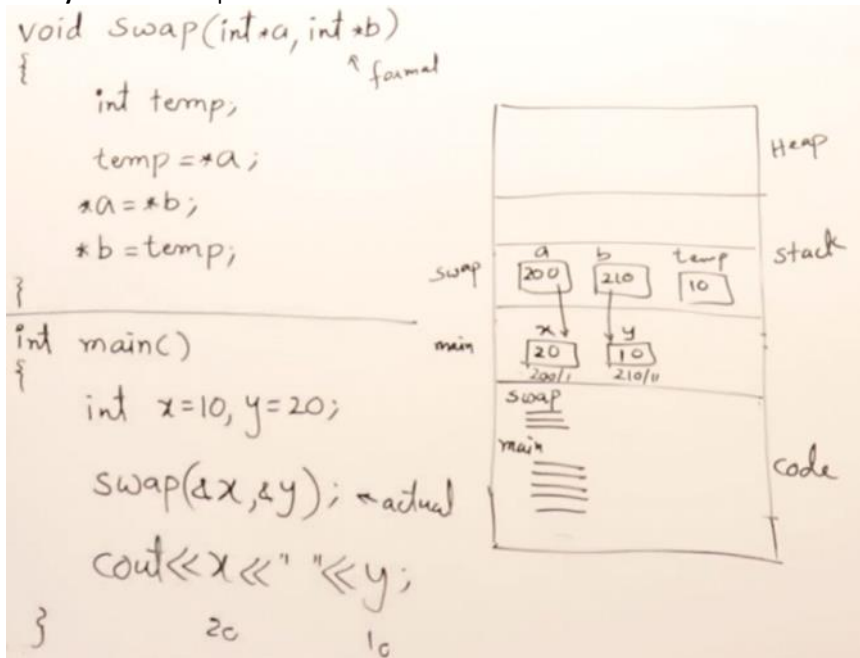 void swap(int *a, int *b)
{
formal
int temp;
temp = *a;
*a = *b;
*b = temp;
}
int main()
{
int x=10, y=20;
swap(&x, &y); actual
cout<<x<<" "<<y;
20 10
}
Heap
a b temp
swap 200 210 10 stack
x y
main 20 10
200/1 210/11
swap
main
code